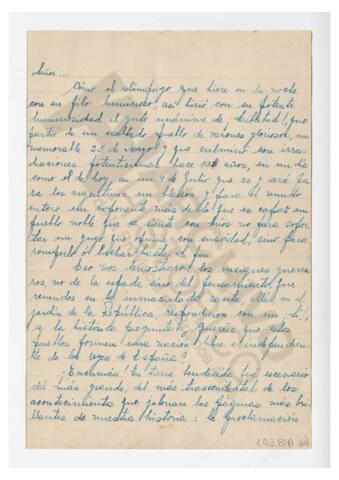 Señor...
Como el relámpago que hiere en la noche
con su filo luminoso, así hirió con su potente
luminosidad el grito unánime de ¡Libertad! que
partió de un exaltado pueblo de varones gloriosos, un
memorable 25 de Mayo y que culminó con irra-
diaciones portentosas hace años, en un día
como el de hoy, en un 9 de Julio que es y será pa-
ra los argentinos un blasón y para el mundo
entero un exponente más de lo que es capaz un
pueblo noble que se siente con bríos no para sopor-
tar un yugo que oprime con suavidad, sino para
romperlo o luchar hasta el fin.
Eso nos demostraron los insignes guerre-
ros, no de la espada sino del pensamiento, que
reunidos en la inmaculada casita, allá en el
jardín de la República, respondieron con un ¡Sí!,
a la histórica pregunta: ¿Queréis que estos
pueblos formen una nación libre e independien-
te de los reyes de España?
¡Tucumán! Tu tierra bendecida fué escenario
del más grande, del más trascendental de los
acontecimientos que jalonan las páginas más bri-
llantes de nuestra historia: la proclamación